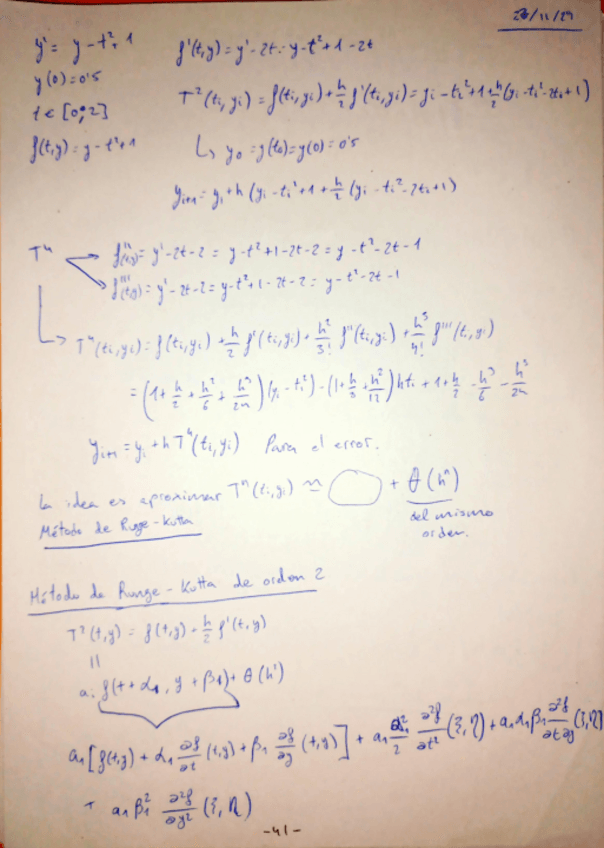 26/11/24
y' = y - t² + 1
f'(t,y) = y' - 2t = y - t² + 1 - 2t
y(0) = 0'5
T²(ti, yi) = f(ti, yi) + h/2 f'(ti, yi) = yi - ti² + 1 + h/2 (yi - ti² - 2ti + 1)
t ∈ [0; 2]
f(t,y) = y - t² + 1
↳ y0 = y(t0) = y(0) = 0'5
yi+1 = yi + h (yi - ti² + 1 + h/2 (yi - ti² - 2ti + 1)
T⁴
f''(t,y) = y' - 2t - 2 = y - t² + 1 - 2t - 2 = y - t² - 2t - 1
f'''(t,y) = y' - 2t - 2 = y - t² + 1 - 2t - 2 = y - t² - 2t - 1
↳ T⁴(ti, yi) = f(ti, yi) + h/2 f'(ti, yi) + h²/3! f''(ti, yi) + h³/4! f'''(ti, yi)
= (1 + h/2 + h²/6 + h³/24) (yi - ti²) - (1 + h/3 + h²/12) hti + 1 + h/2 - h²/6 - h³/24
yi+1 = yi + h T⁴(ti, yi) Para el error.
La idea es aproximar Tⁿ(ti, yi) ≃ + θ(hⁿ)
del mismo
orden.
Método de Runge-Kutta
Método de Runge-Kutta de orden 2
T²(t,y) = f(t,y) + h/2 f'(t,y)
=
a1 f(t + α1, y + β1) + θ(h²)
a1 [f(t,y) + α1 ∂f/∂t (t,y) + β1 ∂f/∂y (t,y)] + a1 α1²/2 ∂²f/∂t² (ξ, η) + a1 α1 β1 ∂²f/∂t∂y (ξ, η)
+ a1 β1² ∂²f/∂y² (ξ, η)
-41-